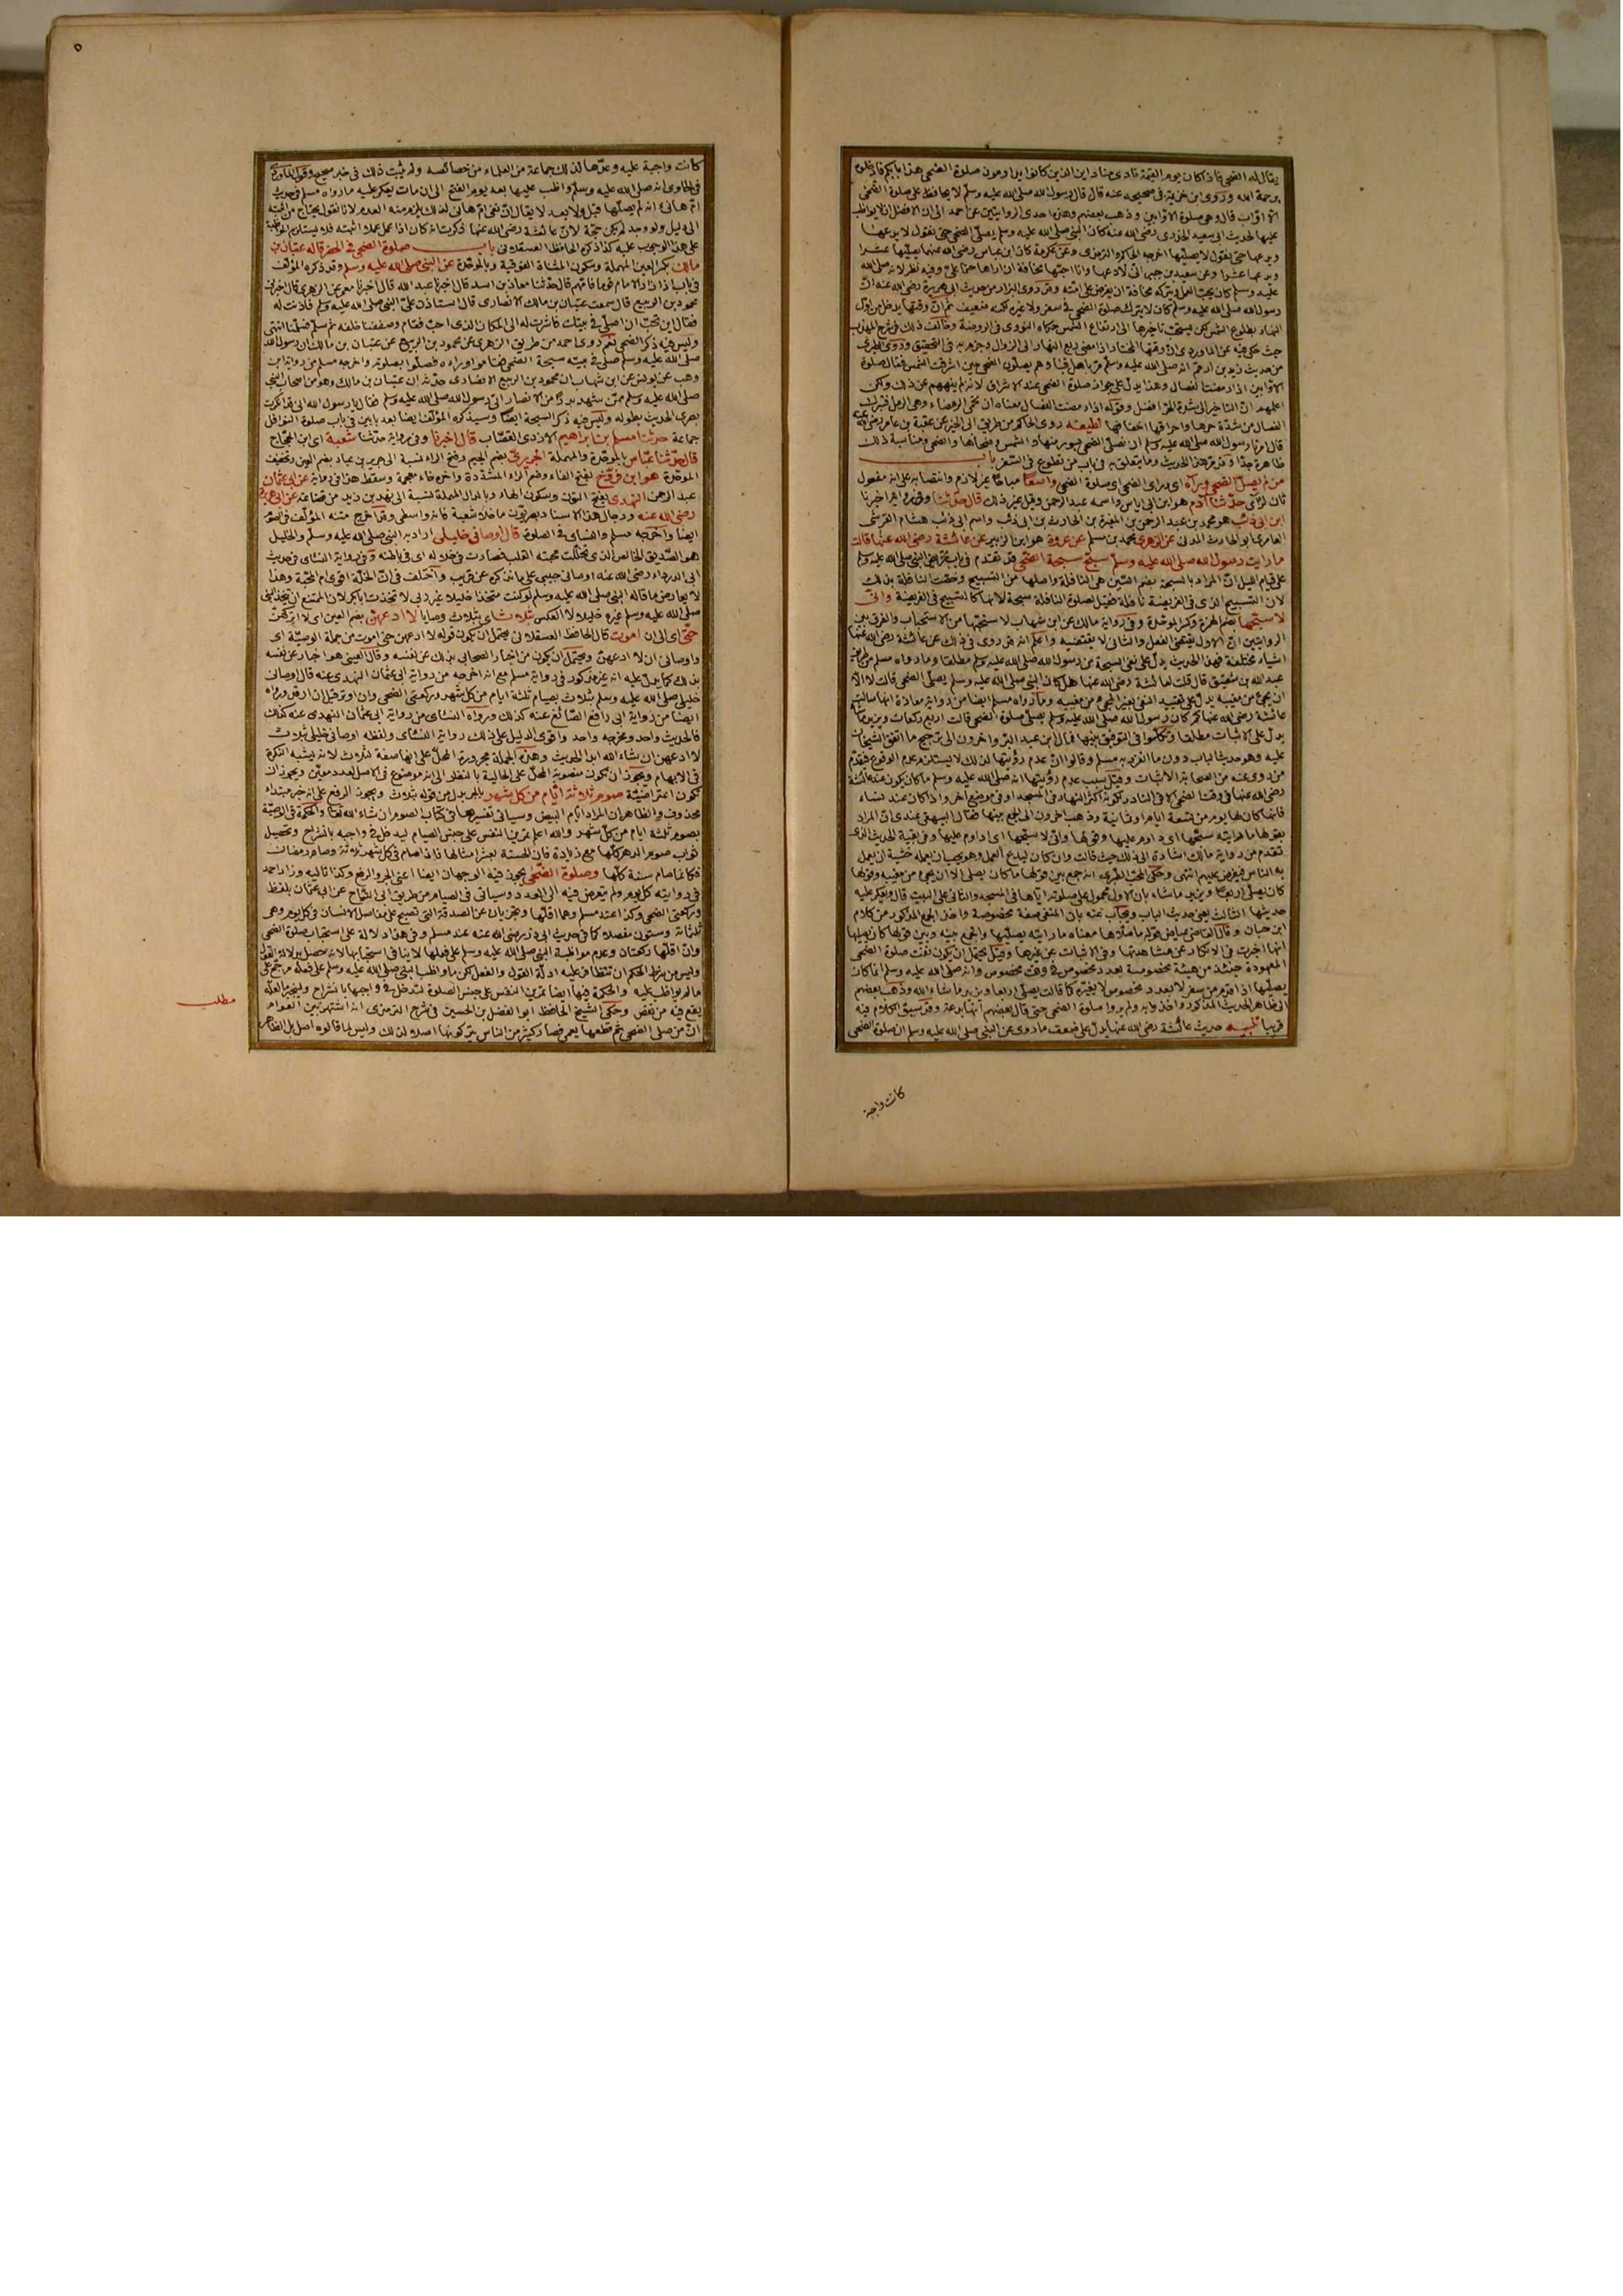 يقال له الضحى فاذا كان يوم القيمة نادى مناد اين الذين كانوا يداومون صلوة الضحى هذا بابكم فادخلوه
برحمة الله وروى ابن خزيمة في صحيحه عنه قال قال رسول الله صلى الله عليه وسلم لا يحافظ على صلوة الضحى
الا اواب قال وهي صلوة الاوابين وذهب بعضهم وهذه احدى الروايتين عن احمد الى ان الافضل ان لا يواظب
عليها لحديث ابي سعيد الخدري رضي الله عنه كان النبي صلى الله عليه وسلم يصلي الضحى حتى نقول لا يدعها
ويدعها حتى نقول لا يصليها اخرجه الحاكم والترمذي وعن عكرمة كان ابن عباس رضي الله عنهما يصليها عشرا
ويدعها عشرا وعن سعيد بن جبير اني لادعها وانا احبها مخافة ان اراها حتما علي وفيه نظر لانه صلى الله
عليه وسلم كان يحب العمل ويتركه مخافة ان يفرض على امته وقد روى البزار من حديث ابي هريرة رضي الله عنه ان
رسول الله صلى الله عليه وسلم كان لا يترك صلوة الضحى في سفر ولا غيره لكنه ضعيف ثم ان وقتها يدخل من اول
النهار بطلوع الشمس لكن يستحب تأخيرها الى ارتفاع الشمس حكاه النووي في الروضة وخالف ذلك في شرح المهذب
حيث حكى فيه عن الماوردي ان وقتها المختار اذا مضى ربع النهار الى الزوال وجزم به في التحقيق وروى الطبري
من حديث زيد بن ارقم انه صلى الله عليه وسلم مر باهل قبا وهم يصلون الضحى حين اشرقت الشمس فقال صلوة
الاوابين اذا رمضت الفصال وهذا يدل على جواز صلوة الضحى عند الاشراق لانه لم ينههم عن ذلك ولكن
اعلمهم ان التاخير الى شدة الحر افضل وقوله اذا رمضت الفصال معناه ان تحمى الرمضاء وهي الرمل فتبرك
الفصال من شدة حرها واحراقها اخفافها لطيفه روى الحاكم من طريق ابي الخير عن عقبة بن عامر رضي الله عنه
قال امرنا رسول الله صلى الله عليه وسلم ان نصلي الضحى بسور منها والشمس وضحاها والضحى ومناسبة ذلك
ظاهرة جدا وقد مر هذا الحديث وما يتعلق به في باب من تطوع في السفر باب
من لم يصل الضحى ورآه اى وراى الضحى اى صلوة الضحى واسعا مباحا غير لازم وانتصابه على انه مفعول
ثان لرأى حدثنا آدم هو ابن ابي اياس واسمه عبد الرحمن وقيل غير ذلك قال حدثنا وفي رواية اخبرنا
ابن ابي ذئب هو محمد بن عبد الرحمن بن المغيرة بن الحارث بن ابي ذئب واسم ابي ذئب هشام القرشي
العامري ابو الحارث المدني عن الزهري محمد بن مسلم عن عروة هو ابن الزبير عن عائشة رضي الله عنها قالت
ما رايت رسول الله صلى الله عليه وسلم سبح سبحة الضحى قد تقدم في باب تحريض النبي صلى الله عليه وسلم
على قيام الليل ان المراد بالسبحة بضم السين هي النافلة واصلها من التسبيح وخصت النافلة بذلك
لان التسبيح الذي في الفريضة نافلة فقيل لصلوة النافلة سبحة لانها كالتسبيح في الفريضة واني
لاسبحها بضم الهمزة وكسر الموحدة وفي رواية مالك عن ابن شهاب لاستحبها من الاستحباب والفرق بين
الروايتين ان الاول يقتضي الفعل والثاني لا يقتضيه واعلم انه قد روى في ذلك عن عائشة رضي الله عنها
اشياء مختلفة فهذا الحديث يدل على نفي السبحة من رسول الله صلى الله عليه وسلم مطلقا وما رواه مسلم من طريق
عبد الله بن شقيق قال قلت لعائشة رضي الله عنها هل كان النبي صلى الله عليه وسلم يصلي الضحى قالت لا الا
ان يجيء من مغيبه يدل على تقييد النفي بغير المجيء من مغيبه وما رواه مسلم ايضا من رواية معاذة انها سالت
عائشة رضي الله عنها كم كان رسول الله صلى الله عليه وسلم يصلي صلوة الضحى قالت اربع ركعات ويزيد ما شاء
يدل على الاثبات مطلقا وتكلموا في التوفيق بينها فمال ابن عبد البر واخرون الى ترجيح ما اتفق الشيخان
عليه وهو حديث الباب دون ما انفرد به مسلم وقالوا ان عدم رؤيتها لذلك لا يستلزم عدم الوقوع فيقدم
من روى عنه من الصحابة الاثبات وقيل سبب عدم رؤيتها انه صلى الله عليه وسلم ما كان يكون عند عائشة
رضي الله عنها في وقت الضحى الا في النادر لكونه اكثر النهار في المسجد او في موضع اخر واذا كان عند نسائه
فانها كان لها يوم من تسعة ايام او ثمانية وذهب اخرون الى الجمع بينها فقال البيهقي عندي ان المراد
بقولها ما رايته سبحها اى داوم عليها وقولها واني لاسبحها اى اداوم عليها وفي بقية الحديث الذي
تقدم من رواية مالك اشارة الى ذلك حيث قالت وان كان ليدع العمل وهو يحب ان يعمله خشية ان يعمل
به الناس فيفرض عليهم انتهى وحكى المحب الطبري انه جمع بين قولها ما كان يصلي الا ان يجيء من مغيبه وقولها
كان يصلي اربعا ويزيد ما شاء بان الاول محمول على صلوته اياها في المسجد والثاني على البيت قال ويعكر عليه
حديثها الثالث يعني حديث الباب ويجاب عنه بان المنفي صفة مخصوصة واخذ الجمع المذكور من كلام
ابن حبان وقال القاضي عياض قوله ما صلاها معناه ما رايته يصليها والجمع بينه وبين قولها كان يصليها
انها اخبرت في الانكار عن مشاهدتها وفي الاثبات عن غيرها وقيل يحتمل ان يكون نفت صلوة الضحى
المعهودة حينئذ من هيئة مخصوصة بعدد مخصوص في وقت مخصوص وانه صلى الله عليه وسلم انما كان
يصليها اذا قدم من سفر لا بعدد مخصوص لا بغيره كما قالت يصلي اربعا ويزيد ما شاء الله وذهب بعضهم
الى ظاهر الحديث المذكور واخذوا به ولم يروا صلوة الضحى حتى قال بعضهم انها بدعة وقد سبق الكلام فيه
قريبا تنبيه حديث عائشة رضي الله عنها يدل على ضعف ما روى عن النبي صلى الله عليه وسلم ان صلوة الضحى
كانت واجبة
٥
كانت واجبة عليه وعدها لذلك جماعة من العلماء من خصائصه ولم يثبت ذلك في خبر صحيح وقول الماوردي
في الحاوي انه صلى الله عليه وسلم واظب عليها بعد يوم الفتح الى ان مات يعكر عليه ما رواه مسلم في حديث
ام هانئ انه لم يصلها قبل ولا بعد لا يقال ان نفي ام هانئ لذلك يلزم منه العدم لانا نقول يحتاج من اثبته
الى دليل ولو وجد لم يكن حجة لان عائشة رضي الله عنها ذكرت انه كان اذا عمل عملا اثبته فلا يستلزم المواظبة
على هذا الوجوب عليه كذا ذكره الحافظ العسقلاني باب صلوة الضحى في الحضر قاله عتبان بن
مالك بكسر العين المهملة وسكون المثناة الفوقية وبالموحدة عن النبي صلى الله عليه وسلم وقد ذكره المؤلف
في باب اذا زار الامام قوما فامهم قال حدثنا معاذ بن اسد قال اخبرنا عبد الله قال اخبرنا معمر عن الزهري قال اخبرني
محمود بن الربيع قال سمعت عتبان بن مالك الانصاري قال استاذن علي النبي صلى الله عليه وسلم فاذنت له
فقال اين تحب ان اصلي في بيتك فاشرت له الى المكان الذي احب فقام وصففنا خلفه ثم سلم فسلمنا انتهى
وليس فيه ذكر الضحى نعم روى احمد من طريق الزهري عن محمود بن الربيع عن عتبان بن مالك ان رسول الله
صلى الله عليه وسلم صلى في بيته سبحة الضحى فقاموا وراءه فصلوا بصلوته واخرجه مسلم من رواية ابن
وهب عن يونس عن ابن شهاب ان محمود بن الربيع الانصاري حدثه ان عتبان بن مالك وهو من اصحاب النبي
صلى الله عليه وسلم ممن شهد بدرا من الانصار اتى رسول الله صلى الله عليه وسلم فقال يا رسول الله اني قد انكرت
بصري الحديث بطوله وليس فيه ذكر السبحة ايضا وسيذكره المؤلف ايضا بعد بابين في باب صلوة النوافل
جماعة حدثنا مسلم بن ابراهيم الازدي القصاب قال اخبرنا وفي رواية حدثنا شعبة اى ابن الحجاج
قال حدثنا عباس بالموحدة والمهملة الجريري بضم الجيم وفتح الراء نسبة الى جرير بن عباد بضم العين وتخفيف
الموحدة هو ابن فروخ بفتح الفاء وضم الراء المشددة واخره خاء معجمة وسقط هذا في رواية عن ابي عثمان
عبد الرحمن النهدي بفتح النون وسكون الهاء وبالدال المهملة نسبة الى نهد بن زيد من قضاعة عن ابي هريرة
رضي الله عنه ورجال هذا الاسناد بصريون ما خلا شعبة فانه واسطي وقد اخرج متنه المؤلف في الصوم
ايضا واخرجه مسلم والنسائي في الصلوة قال اوصاني خليلي اراد به النبي صلى الله عليه وسلم والخليل
هو الصديق الخالص الذي تخللت محبته القلب فصارت في خلاله اى في باطنه وفي رواية النسائي في حديث
ابي الدرداء رضي الله عنه اوصاني حبيبي على ما نذكره عن قريب واختلف في ان الخلة اقوى ام المحبة وهذا
لا يعارض ما قاله النبي صلى الله عليه وسلم لو كنت متخذا خليلا غير ربي لاتخذت ابا بكر لان الممتنع ان يتخذ النبي
صلى الله عليه وسلم غيره خليلا لا العكس بثلاث اى بثلاث وصايا لا ادعهن بضم العين اى لا اتركهن
حتى اى الى ان اموت قال الحافظ العسقلاني يحتمل ان يكون قوله لا ادعهن حتى اموت من جملة الوصية اى
واوصاني ان لا ادعهن ويحتمل ان يكون من اخبار الصحابي بذلك عن نفسه وقال العيني هو اخبار عن نفسه
بذلك كما يدل عليه انه غير مذكور في رواية مسلم مع انه اخرجه من رواية ابي عثمان النهدي عنه قال اوصاني
خليلي صلى الله عليه وسلم بثلاث بصيام ثلثة ايام من كل شهر وركعتي الضحى وان اوتر قبل ان ارقد ورواه
ايضا من رواية ابي رافع الصائغ عنه كذلك ورواه النسائي من رواية ابي عثمان النهدي عنه كذلك
فالحديث واحد ومخرجه واحد واقوى الدليل على ذلك رواية النسائي ولفظه اوصاني خليلي بثلاث
لا ادعهن ان شاء الله ابدا الحديث وهذه الجملة مجرورة المحل على انها صفة لثلاث لانه يشبه النكرة
في الابهام ويجوز ان تكون منصوبة المحل على الحالية بالنظر الى انه موضوع في الاصل لعدد معين ويجوز ان
تكون اعتراضية صوم ثلاثة ايام من كل شهر بالجر بدل من قوله بثلاث ويجوز الرفع على انه خبر مبتداء
محذوف والظاهر ان المراد ايام البيض وسياتي تفسيرها في كتاب الصوم ان شاء الله تعالى والحكمة في الوصية
بصوم ثلثة ايام من كل شهر والله اعلم تمرين النفس على جنس الصيام ليدخل في واجبه بانشراح وتحصيل
ثواب صوم الدهر كلها مع زيادة فان الحسنة بعشر امثالها فاذا صام في كل شهر ثلاثة وصام رمضان
فكانما صام سنة كلها وصلوة الضحى يجوز فيه الوجهان ايضا اعني الجر والرفع وكذا تاليه وزاد احمد
في روايته كل يوم ولم يتعرض فيه الى العدد وسياتي في الصيام من طريق ابي التياح عن ابي عثمان بلفظ
وركعتي الضحى وكذا عند مسلم وهما اقلها وتجزيان عن الصدقة التي تصبح على مفاصل الانسان في كل يوم وهي
ثلثمائة وستون مفصلا كما في حديث ابي ذر رضي الله عنه عند مسلم وفي هذا دلالة على استحباب صلوة الضحى
وان اقلها ركعتان وعدم مواظبة النبي صلى الله عليه وسلم على فعلها لا ينافي استحبابها لانه حاصل بدلالة القول
وليس من شرط الحكم ان تتظافر عليه ادلة القول والفعل لكن ما واظب النبي صلى الله عليه وسلم على فعله مرجح على
ما لم يواظب عليه والحكمة فيها ايضا تمرين النفس على جنس الصلوة لتدخل في واجبها بانشراح ولينجبر ما لعله
يقع فيه من نقص وحكى الشيخ الحافظ ابو الفضل بن الحسين في شرح الترمذي انه اشتهر بين العوام
ان من صلى الضحى ثم قطعها يعمى فصار كثير من الناس يتركونها اصلا لذلك وليس لما قالوه اصل بل الظاهر
مطلب